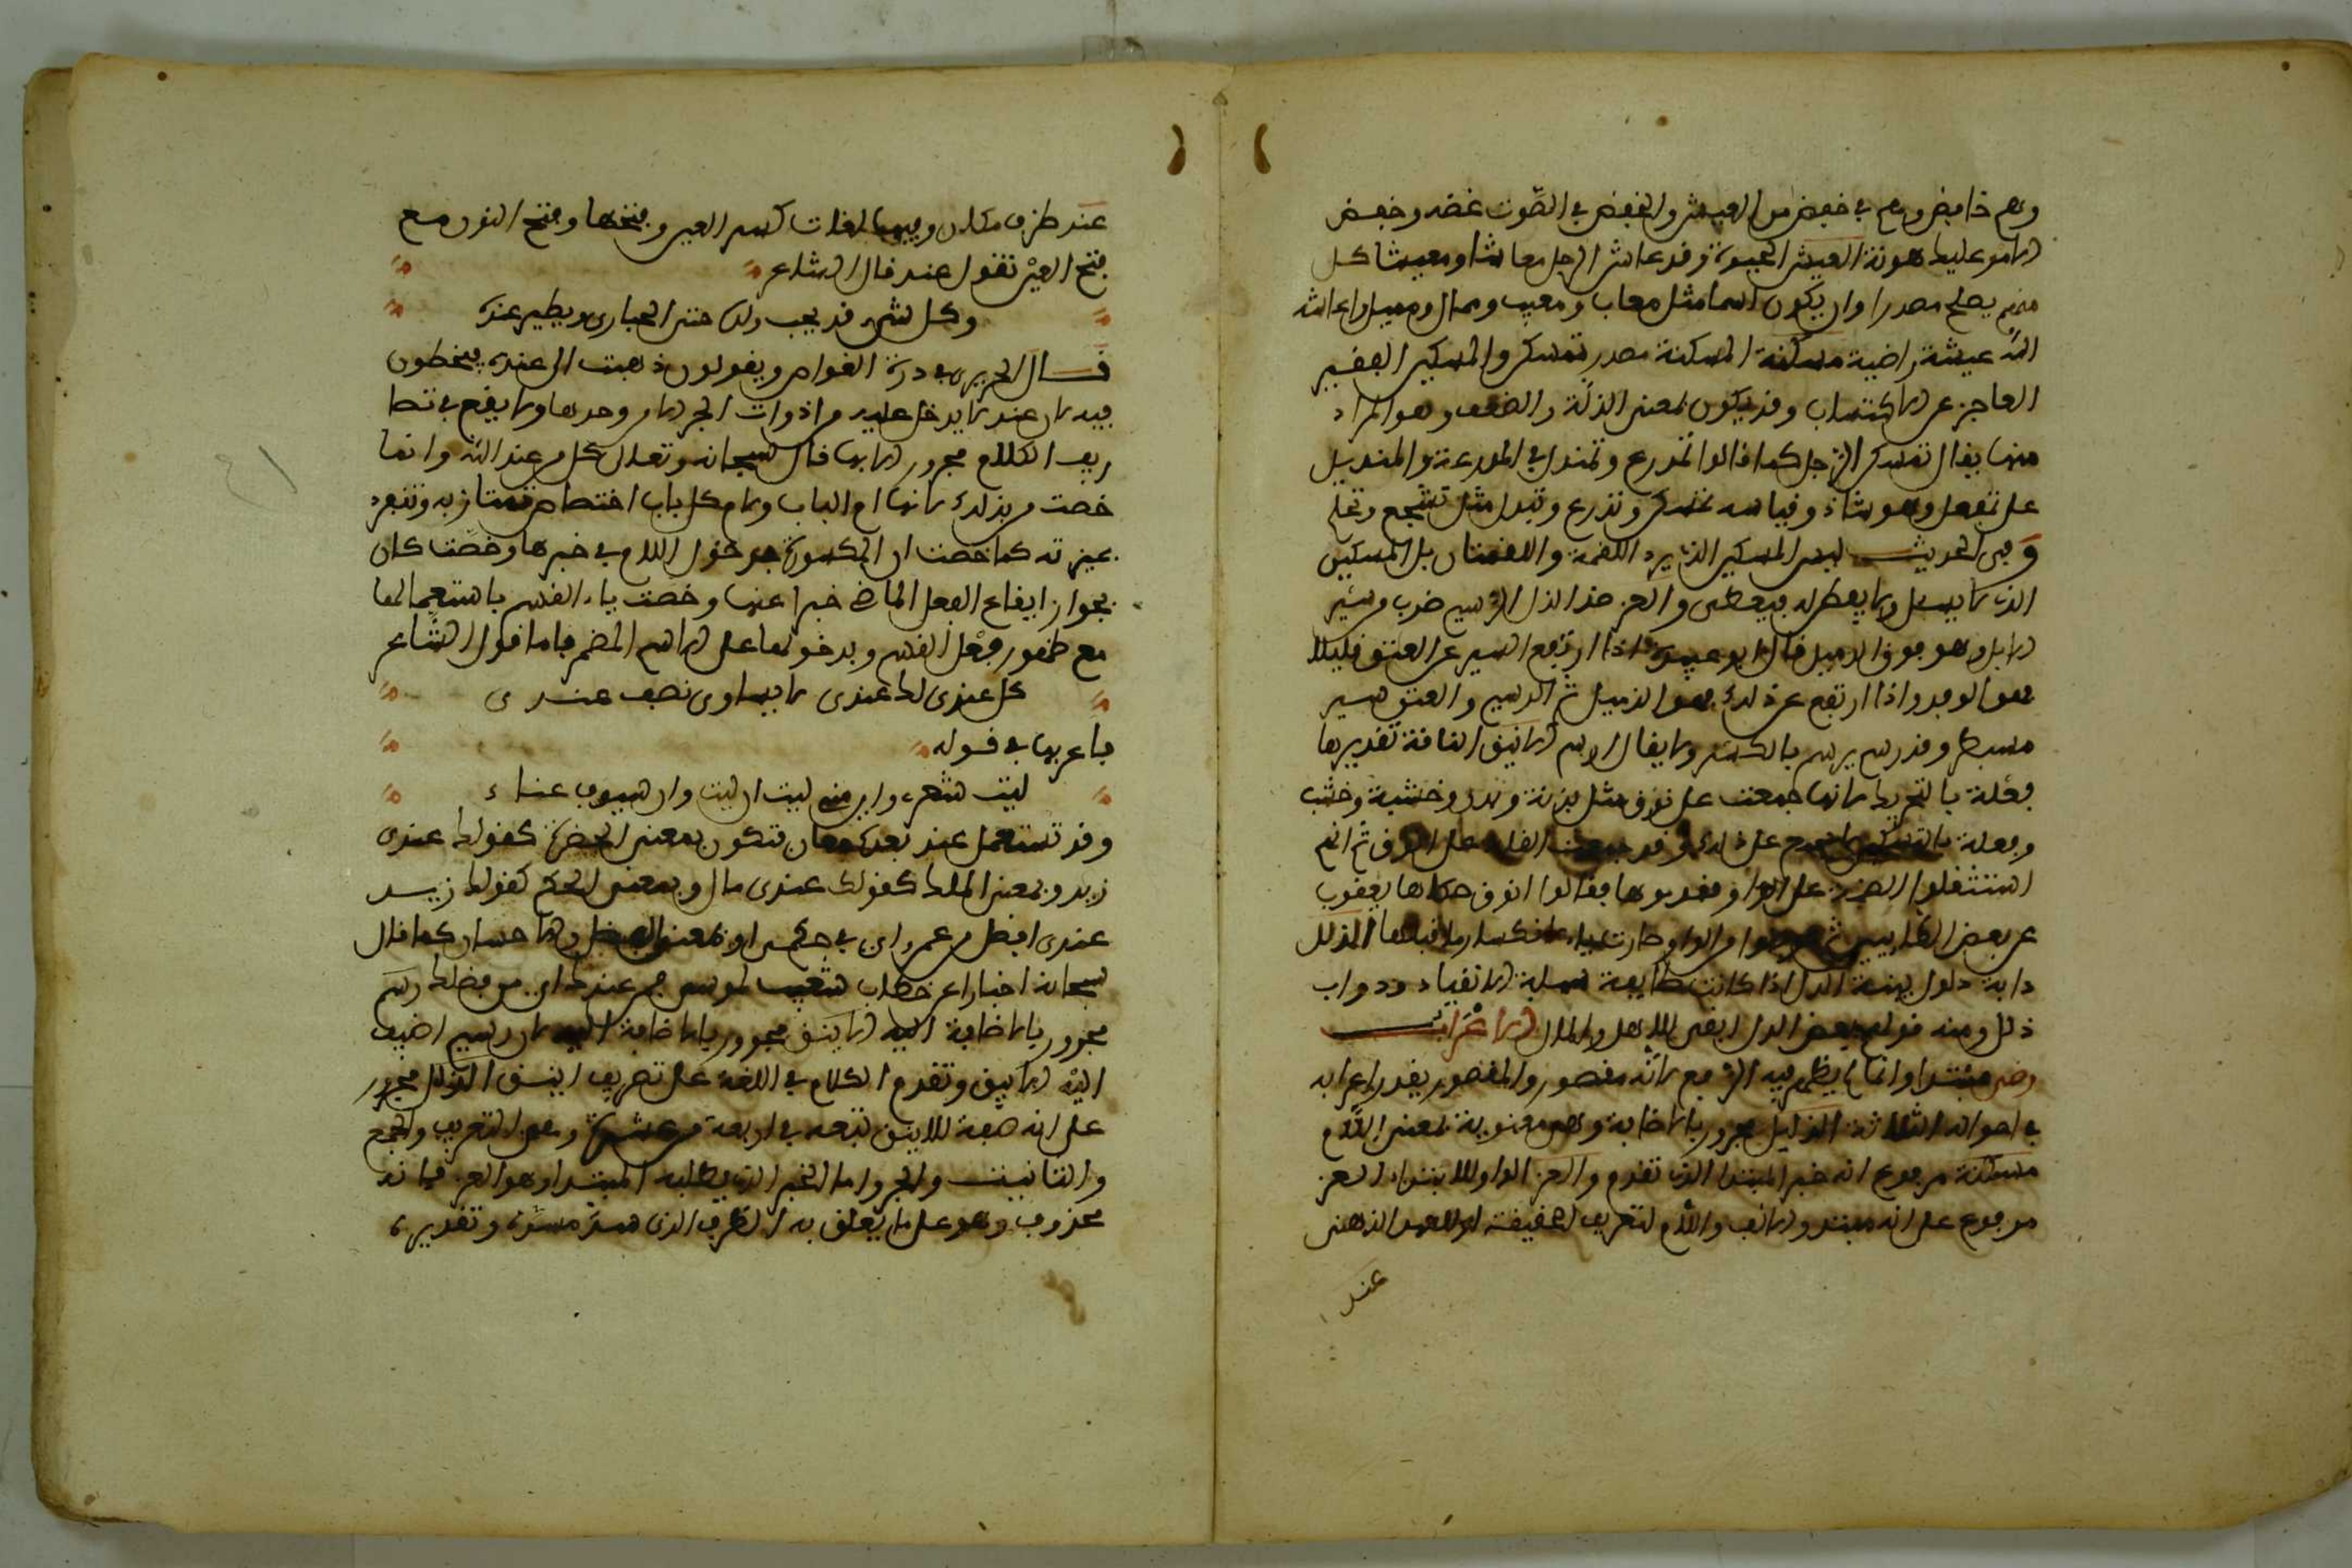 وهم خافض وهم في خفض من العيش والخفض في الصوت غضه وخفض
الامر عليك هونه العيش الحيوة وقد عاش الرجل معاشا ومعيشا كل
منهم يصلح مصدرا وان يكون اسما مثل معاب ومعيب وممال ومميل واعاشه
الله عيشة راضية مسكنة المسكنة مصدر تمسكن والمسكين الفقير
العاجز عن الاكتساب وقد يكون بمعنى الذلة والضعف وهو المراد
منها يقال تمسكن الرجل كما قالوا تمدرع وتمندل في المدرعة والمنديل
على تمفعل وهو شاذ وقياسه تسكن وتدرع وتندل مثل تشجع وتحلم
وفي الحديث ليس المسكين الذي يرده اللقمة واللقمتان بل المسكين
الذي لا يسئل ولا يفطن له فيعطى والعز ضد الذل الرسيم ضرب من سير
الابل وهو فوق الذميل قال ابو عبيد اذا ارتفع السير عن العنق قليلا
فهو التزيد واذا ارتفع عن ذلك فهو الذميل ثم الرسيم والعنق سير
مسبطر وقد رسم يرسم بالكسر ولا يقال ارسم الانيق الناقة تقديرها
فعلة بالتحريك لانها جمعت على نوق مثل بدنة وبدن وخشبة وخشب
وفعلة بالتسكين لا تجمع على ذلك وقد جمعت القلة على انوق ثم انهم
استثقلوا الضمة على الواو فقدموها فقالوا اونق حكاها يعقوب
عن بعض الطائيين ثم عوضوا من الواو ياء فقالوا الذلل
دابة ذلول بينة الذل اذا كانت طايعة سهلة الانقياد ودواب
ذلل ومنه قولهم بعض الذل ابقى للاهل والمال الاعراب
رضى مبتدا وانما لم يظهر فيه الرفع لانه مقصور والمقصور يقدر اعرابه
في احواله الثلاثة الذليل مجرور بالاضافة وهي معنوية بمعنى اللام
مسكنة مرفوع انه خبر المبتدا الذي تقدم والعز الواو للابتداء العز
مرفوع على انه مبتدا والالف واللام لتعريف الحقيقة او للعهد الذهني
عند
عند ظرف مكان وفيها لغات كسر العين وفتحها وفتح النون مع
فتح العين تقول عند قال الشاعر
وكل شيء قد يحب ولده حتى الحبارى ويطير عنده
قال الحريري في درة الغواص ويقولون ذهبت الى عنده فيخطون
فيه لان عند لا يدخل عليه من ادوات الجر الا من وحدها ولا يقع في تصا
ريف الكلام مجرور الا بها قال سبحانه وتعالى كل من عند الله وانما
خصت من بذلك لانها ام الباب ولام كل باب اختصاص تمتاز به وتنفرد
بمزيته كما خصت ان المكسورة بدخول اللام في خبرها وخصت كان
بجواز ايقاع الفعل الماضي خبرا عنها وخصت باء القسم باستعمالها
مع ظهور فعل القسم وبدخولها على الاسم المضمر فاما قول الشاعر
كل عندي لك عندي لا يساوي نصف عندي
فاعربها في قوله
ليت شعري واين مني ليت ان ليت وان سوف عناء
وقد تستعمل عند بعدة معان فتكون بمعنى الحضرة كقولك عندي
زيد وبمعنى الملك كقولك عندي مال وبمعنى الحكم كقولك زيد
عندي افضل من عمرو اي في حكمي او بمعنى الفضل والاحسان كما قال
سبحانه اخبارا عن خطاب شعيب لموسى فمن عندك اي من فضلك رسيم
مجرور بالاضافة اليه الاينق مجرور بالاضافة اليه لان رسيم اضيف
اليه الاينق وتقدم الكلام في اللغة على تصريف اينق الذلل مجرور
على انه صفة للاينق تبعه في اربعة من عشرة وهو التعريف والجمع
والتانيث والجر واما الخبر الذي يطلبه المبتدا وهو العز فانه
محذوف وهو على ما يتعلق به الظرف الذي سد مسده وتقديره